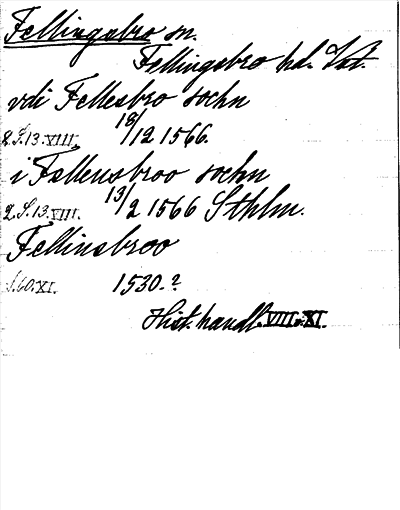 Fellingsbro sn.
Fellingsbro hd. Vst.
vdi Fellesbro sochn
2.S.13.VIII. 18/12 1566.
i Fallensbroo sochn
2.S.13.VIII. 13/2 1566 Sthlm.
Fellinsbroo
S.60.XI. 1530.?
Hist. handl. VIII, XI.